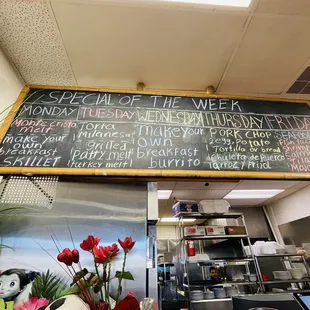 SPECIAL OF THE WEEK
MONDAY TUESDAY WEDNESDAY THURSDAY FRIDAY
melt
Make your
own
breakfast
SKILLET
Torta
Milanesa
grilled
patty melt
turkey melt
Make your
own
breakfast
burrito
PORK CHOP
2 eggs
Tortilla or bread
chuleta de puerco
arroz y frijol
SEAFOOD